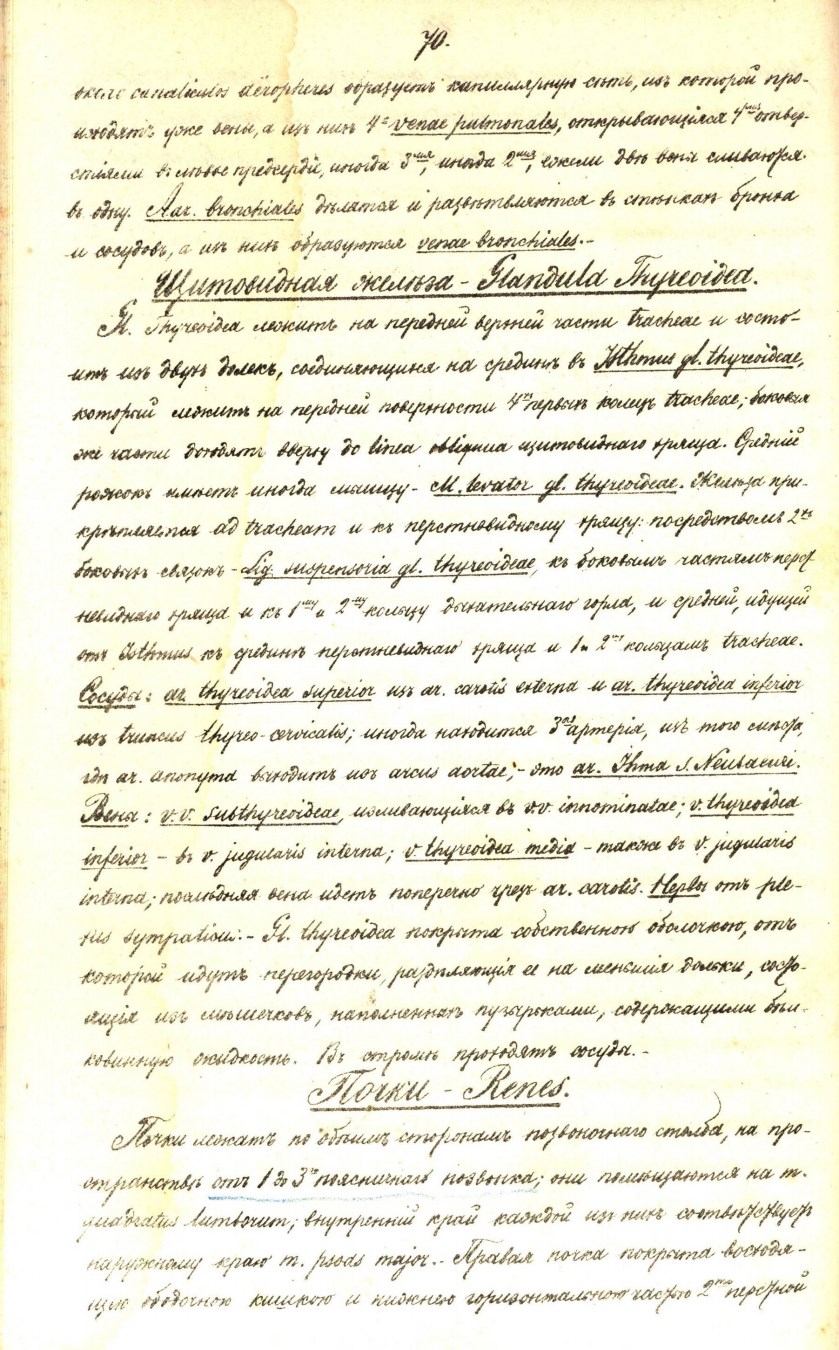 70.
около canaliculos aёropheres образуетъ капиллярную сѣть, изъ которой про-
изходятъ уже вены, а изъ нихъ 4ᵉ venae pulmonales, открывающіяся 4ᵐᵃ отвер-
стіями въ лѣвое предсердіе, иногда 3ᵐᵃ, иногда 2ᵐᵃ, ежели двѣ вены сливаются
въ одну. Aar. bronchiales дѣлятся и развѣтвляются въ стѣнкахъ бронха
и сосудовъ, а изъ нихъ образуются venae bronchiales.-
Щитовидная желѣза - Glandula Thyreoidea.
Gl. Thyreoidea лежитъ на передней верхней части tracheae и состо-
итъ изъ двухъ долекъ, соединяющихся на срединѣ въ Isthmus gl. thyreoideae,
который лежитъ на передней поверхности 4ᵉˣ первыхъ колецъ tracheae; боковыя
же части доходятъ вверху до linea obliqua щитовиднаго хряща. Средній
рожокъ имѣетъ иногда мышцу - M. levator gl. thyreoideae. Желѣза при-
крѣпляется ad tracheam и къ перстневидному хрящу: посредствомъ 2ᵘˣ
боковыхъ связокъ - Lig. suspensoria gl. thyreoideae, къ боковымъ частямъ перст
невиднаго хряща и къ 1ᵐʸ и 2ᵐʸ кольцу дыхательнаго горла, и средней, идущей
отъ Isthmus къ срединѣ перстневиднаго хряща и 1 и 2 кольцамъ tracheae.
Сосуды: ar. thyreoidea superior изъ ar. carotis externa и ar. thyreoidea inferior
изъ truncus thyreo-cervicalis; иногда находится 3ᵃ артерія, изъ того мѣста,
гдѣ ar. anonyma выходитъ изъ arcus aortae; - это ar. Ihma s. Neubaueri.
Вены: v.v. subthyreoideae, изливающіяся въ v.v. innominatae; v. thyreoidea
inferior - въ v. jugularis interna; v. thyreoidea media - также въ v. jugularis
interna; послѣдняя вена идетъ поперечно чрезъ ar. carotis. Нервы отъ ple-
xus sympaticus. - Gl. thyreoidea покрыта собственною оболочкою, отъ
которой идутъ перегородки, раздѣляющія ее на меньшія дольки, состо-
ящія изъ мѣшечковъ, наполненныхъ пузырьками, содержащими бѣл-
ковинную жидкость. Въ стромѣ проходятъ сосуды. -
Почки - Renes.
Почки лежатъ по обѣимъ сторонамъ позвоночнаго столба, на про-
странствѣ отъ 1 до 3ᵃ поясничнаго позвонка; они помѣщаются на m.
quadratus lumborum; внутренній край каждой изъ нихъ соотвѣтствуетъ
наружному краю m. psoas major. - Правая почка покрыта восходя-
щею ободочною кишкою и нижнею горизонтальною частью 12ᵗⁱ перстной